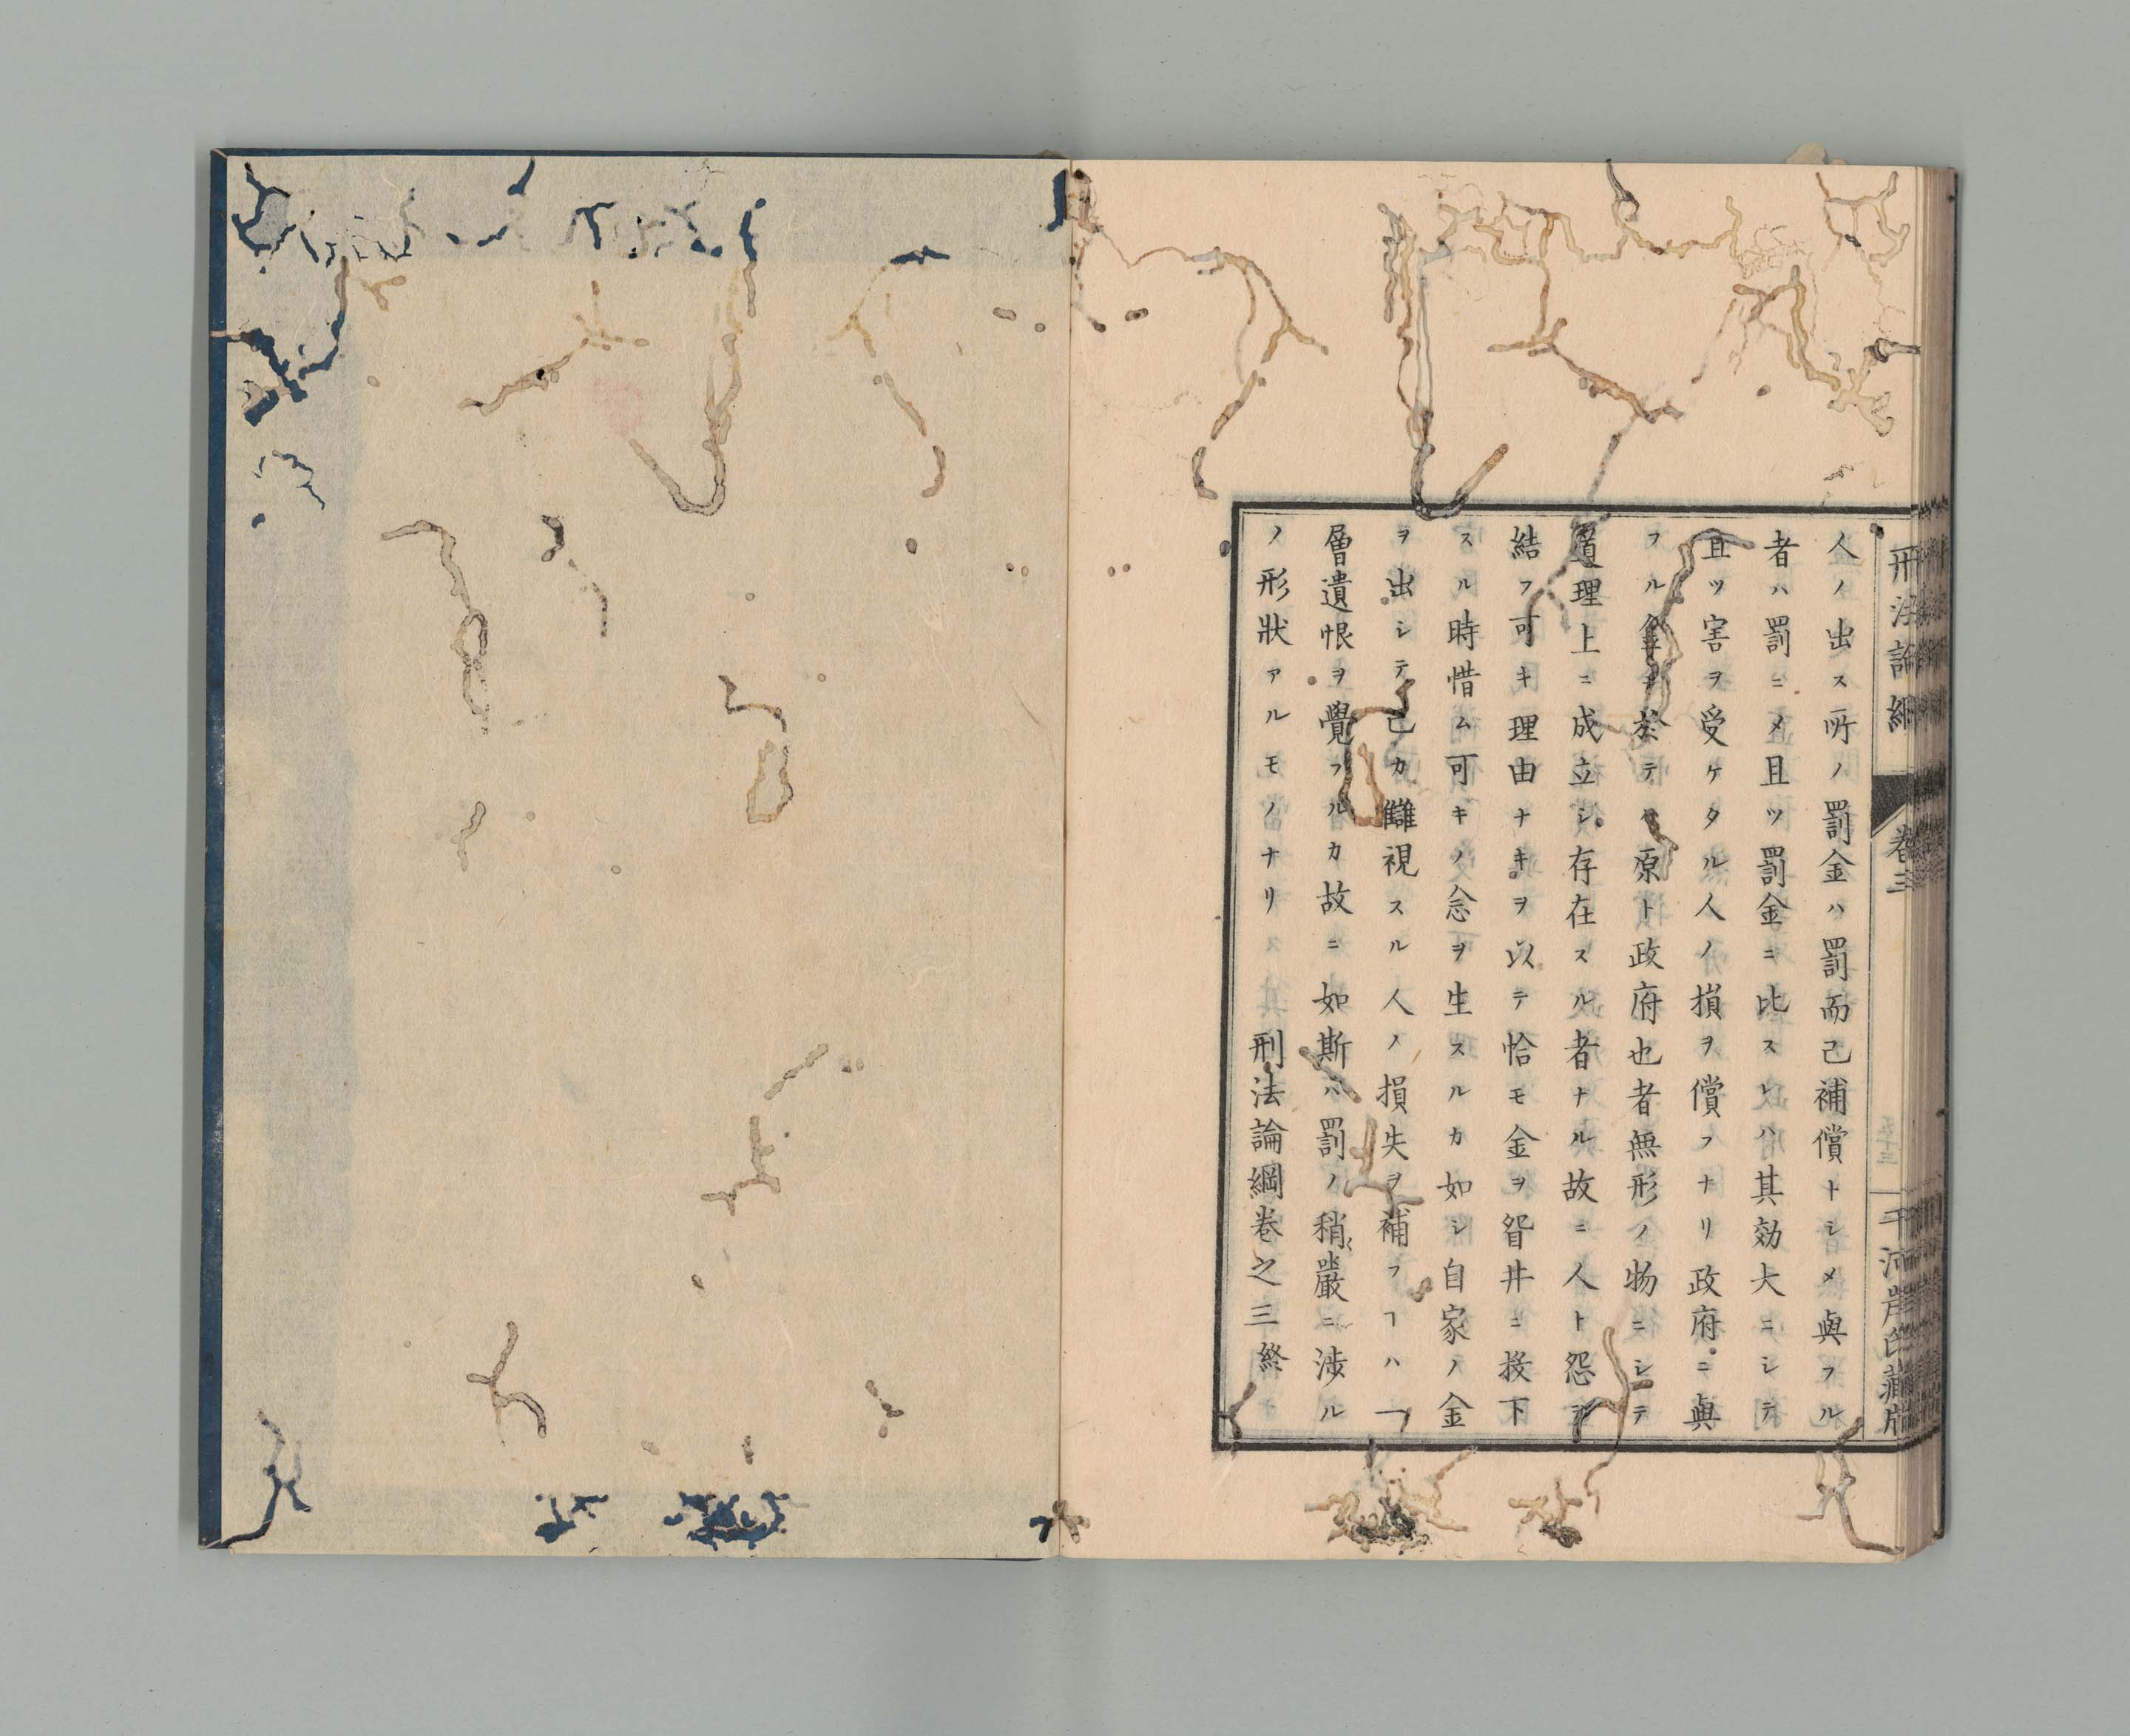 刑法論綱
卷三
河岸氏藏版
人ノ出ス所ノ罰金ハ罰而己補償トシメ與フル
者ハ罰ニメ且ツ罰金ニ比スレハ其効大ニシテ
且ツ害ヲ受ケタル人ノ損ヲ償フナリ政府ニ與
フル金ニ於テハ原ト政府也者無形ノ物ニシテ
道理上ニ成立シ存在スル者ナル故ニ人ト怨ヲ
結フ可キ理由ナキヲ以テ恰モ金ヲ眢井ニ投下
スル時惜ム可キノ念ヲ生スルカ如シ自家ノ金
ヲ出シテ己カ讎視スル人ノ損失ヲ補フヿハ一
層遺恨ヲ覺フルカ故ニ如斯ハ罰ノ稍嚴ニ渉ル
ノ形狀アルモノナリ
刑法論綱卷之三終